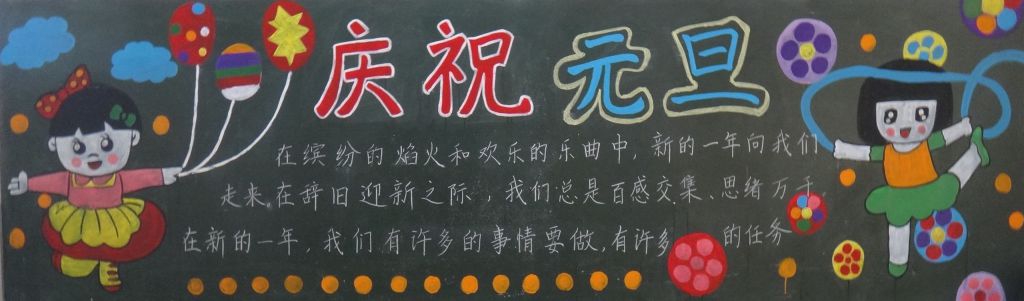 庆祝元旦
在缤纷的焰火和欢乐的乐曲中，新的一年向我们
走来。在辞旧迎新之际，我们总是百感交集、思绪万千。
在新的一年，我们有许多的事情要做，有许多的任务